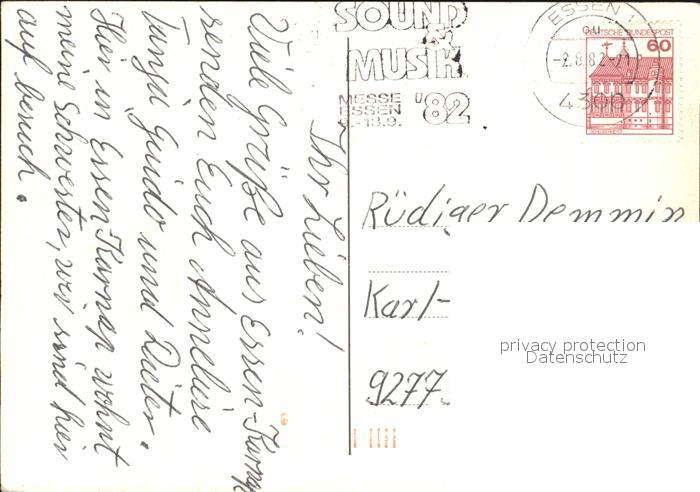 Ihr Lieben!
Viele Grüße aus Essen-Karnap
senden Euch Anneliese
Tanja Guido und Dieter.
Hier in Essen-Karnap wohnt
meine Schwester, wir sind hier
auf besuch.
SOUND
&
MUSIK
MESSE
ESSEN '82
-13.9.
ESSEN 1
au
-2.8.82-21
4300
DEUTSCHE BUNDESPOST
60
Rüdiger Demmin
Karl-
9277
privacy protection
Datenschutz